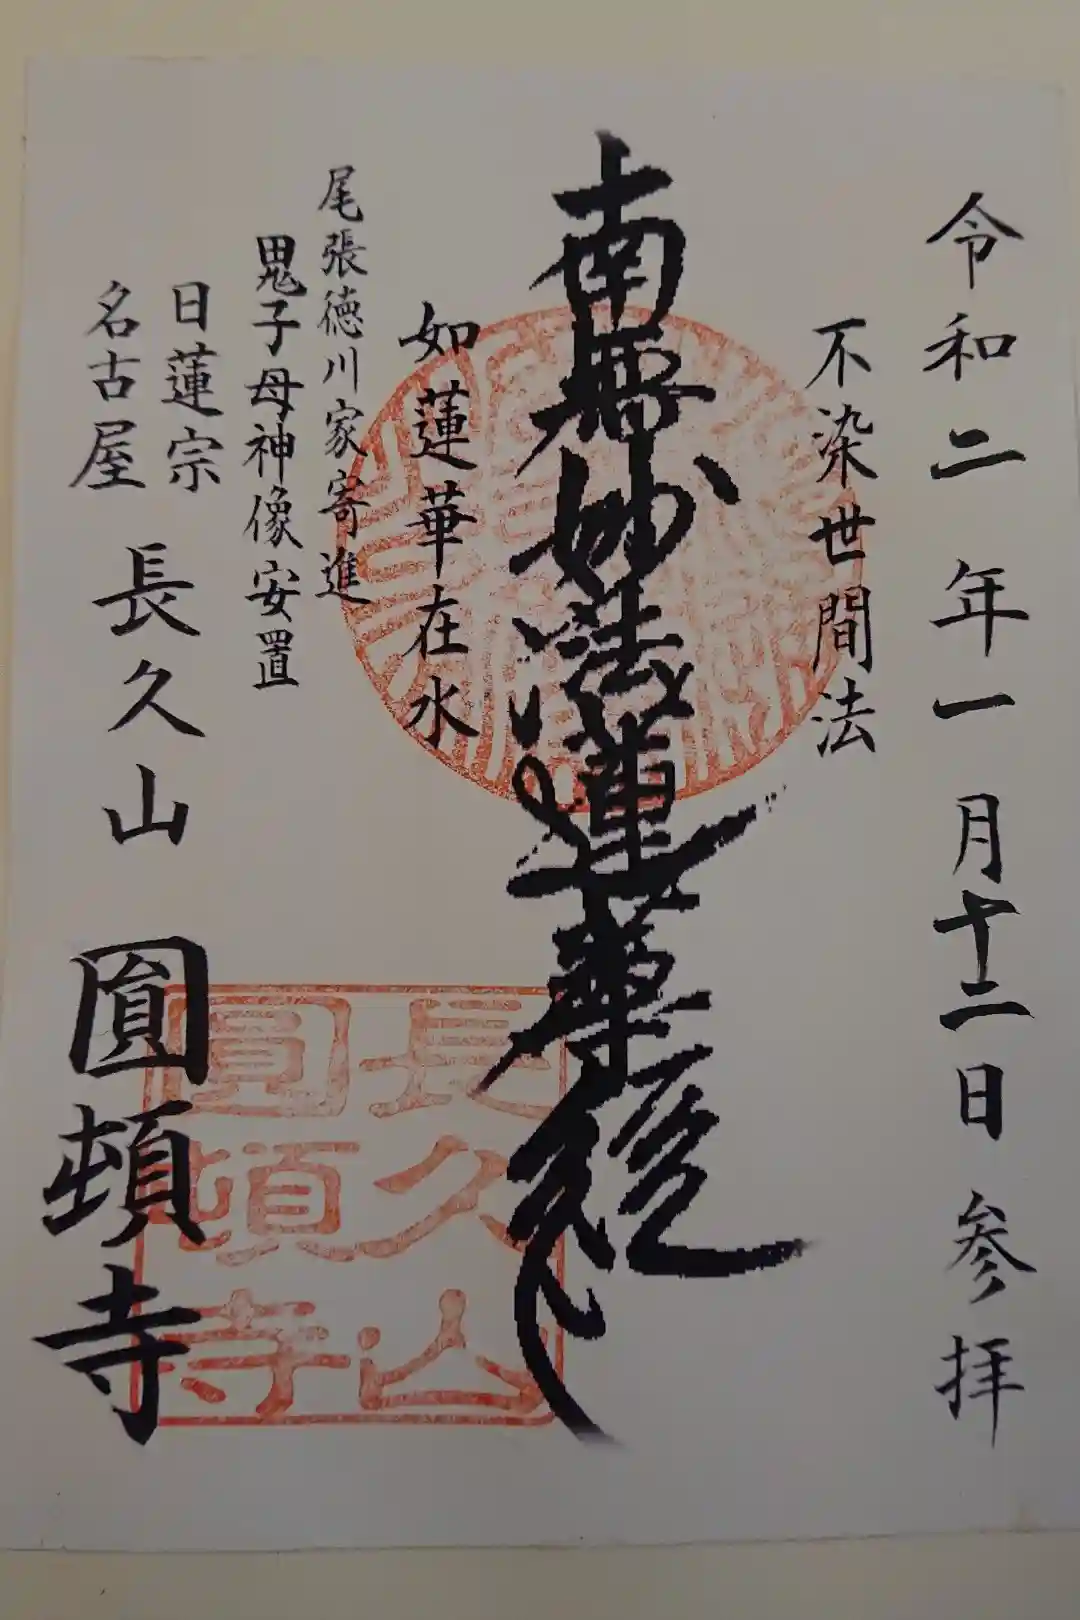 令和二年一月十二日 参拝
不染世間法
南無妙法蓮華経
如蓮華在水
尾張徳川家寄進
鬼子母神像安置
日蓮宗
名古屋
長久山 圓頓寺
長久山
圓頓寺